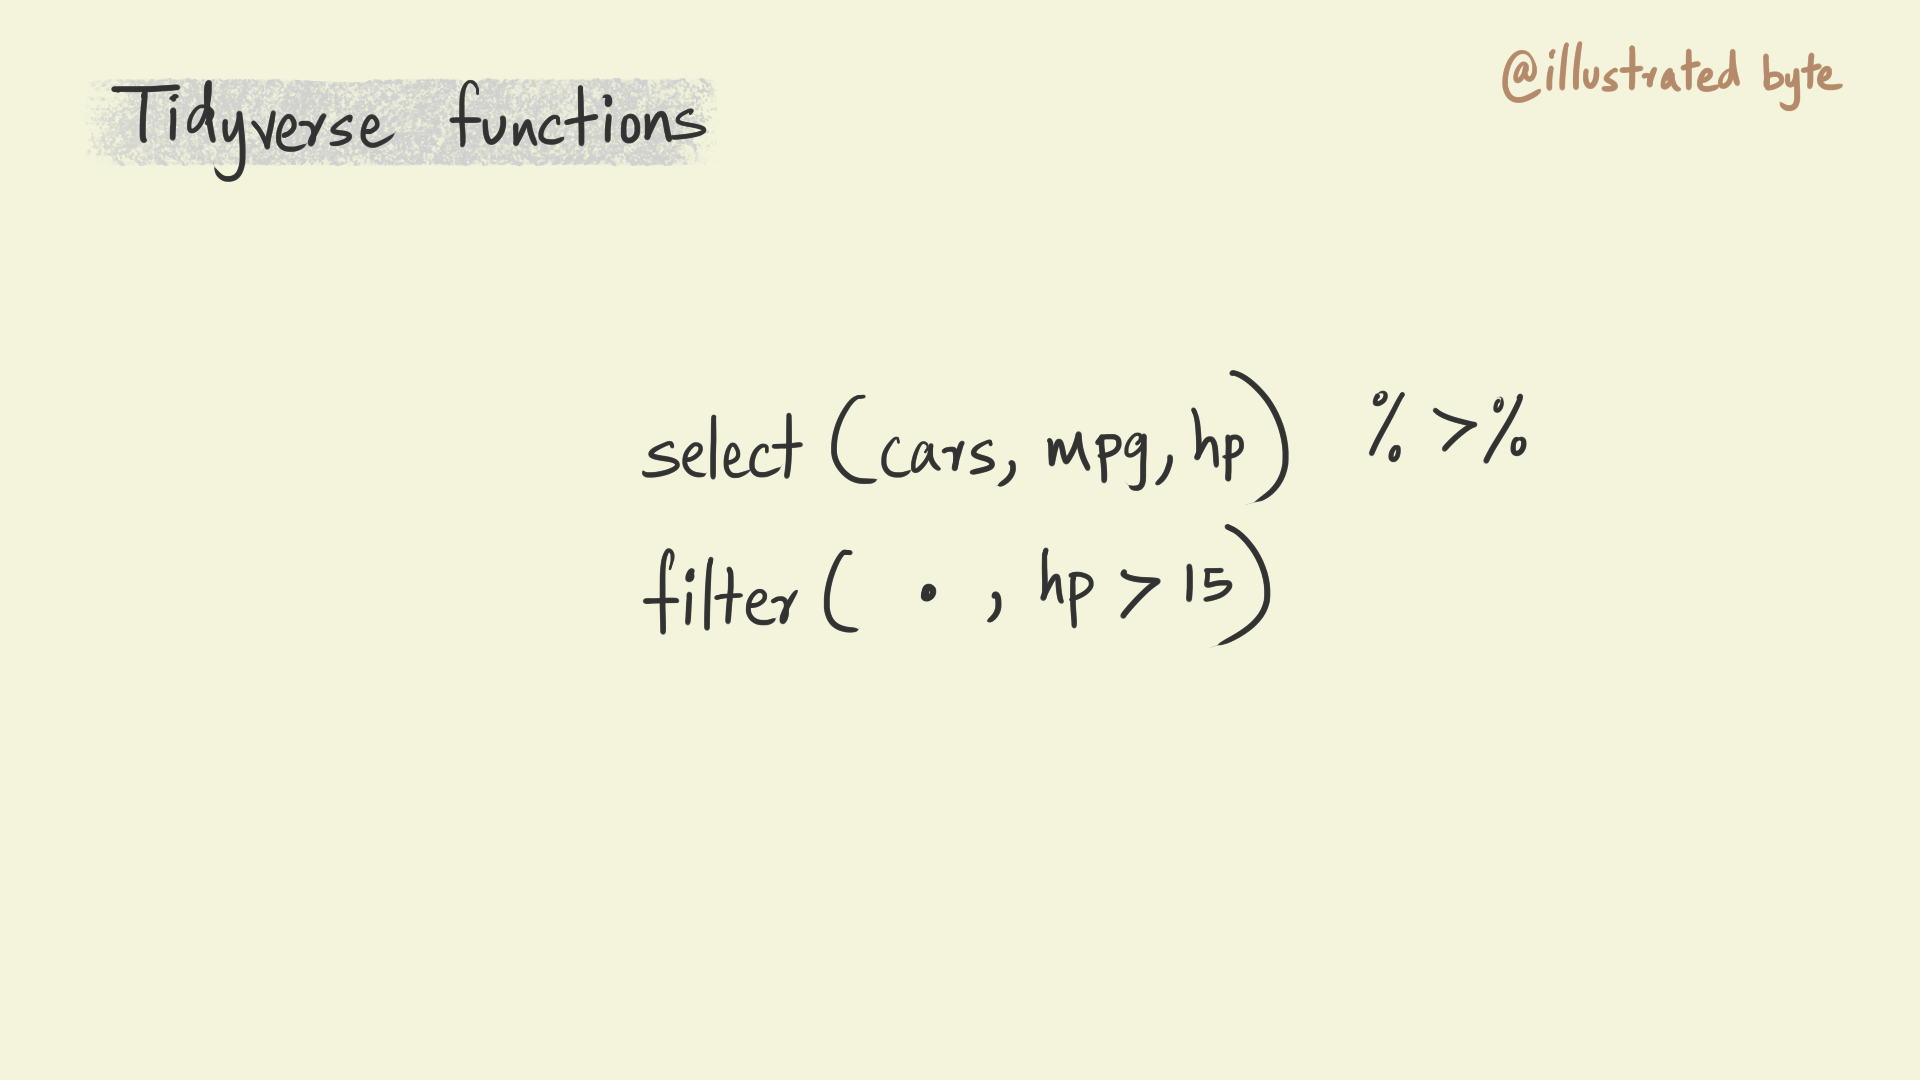 Tidyverse functions
@illustrated byte
select (cars, mpg, hp) %>%
filter ( . , hp > 15)